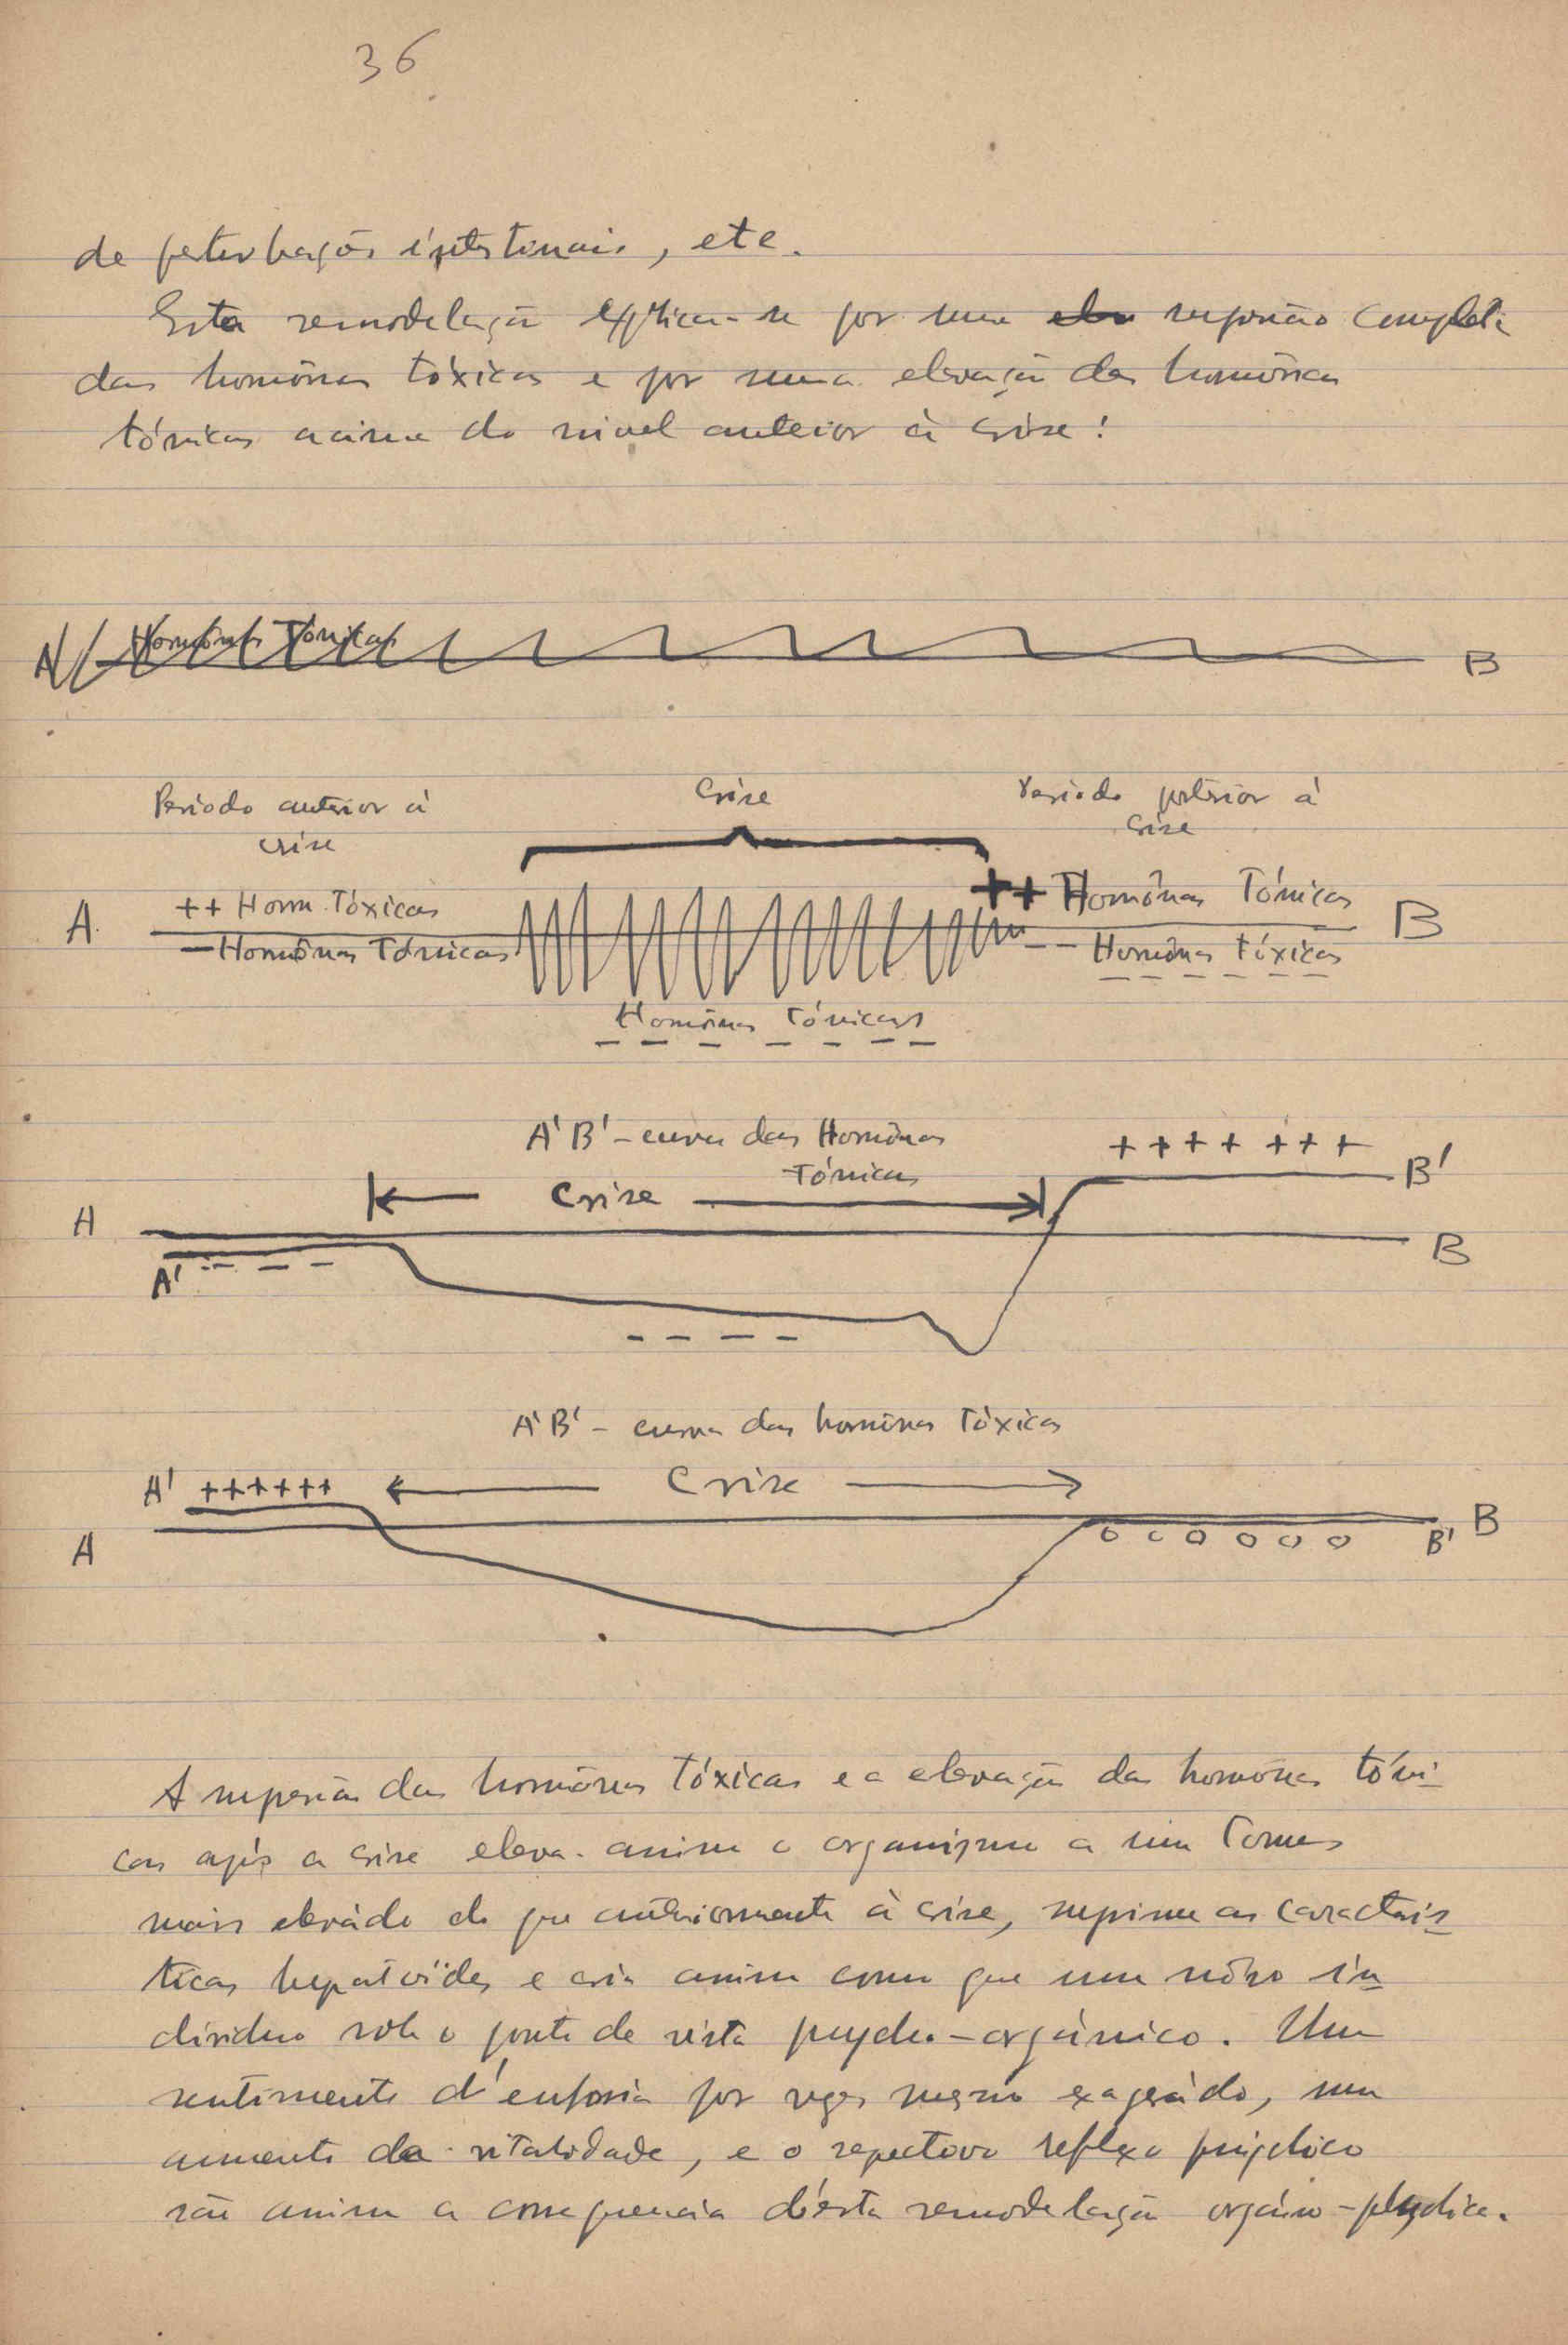 36
de perturbações intestinais, etc.
Esta remodelação explica-se por uma supressão completa
das homónas tóxicas e por uma elevação das homónas
tónicas acima do nivel anterior à crise:
Homónas Tónicas
B
Periodo anterior à
crise
Crise
Periodo posterior à
crise
A ++ Horm. Tóxicas ++ Homónas Tónicas B
— Homónas Tónicas -- Homónas tóxicas
Homónas Tónicas
A'B' - curva das Homónas
Tónicas
+ + + + + + +
B'
Crise
A
B
A'
A'B' - curva das homónas Tóxicas
A' ++++++ Crise
A
o o o o o o B' B
A supressão das homónas tóxicas e a elevação das homónas tóni-
cas após a crise eleva assim o organismo a um Tonus
mais elevádo do que anteriormente à crise, suprime as caracterís-
ticas hepatoïdes e cria assim como que um nôvo in-
divíduo sob o ponto de vista psycho-orgánico. Um
sentimento d'euforia por vezes mesmo exagerádo, um
aumento da vitalidade, e o respectivo reflexo psíquico
são assim a consequencia d'esta remodelação orgáno-psychica.